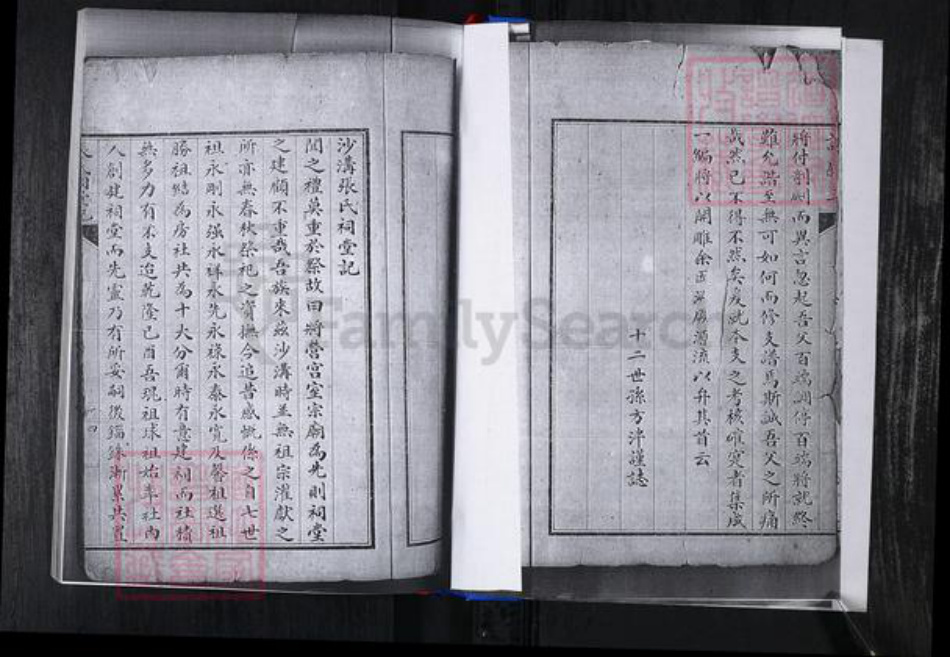 將付剞劂而異言忽起吾父百端調停百端將就終
雖允諧至無可如何而修支譜焉斯誠吾父之所痛
哉然已不得不然矣爰就本支之考核唯寔者集成
一編將以開雕余匹溯厥源流以弁其首云
十二世孫方沣謹誌
沙溝張氏祠堂記
聞之禮莫重於祭故曰將營宮室宗廟為先則祠堂
之建顧不重哉吾族來茲沙溝時並無祖宗灌獻之
所亦無春秋祭祀之資撫今追昔感慨係之自七世
祖永剛永强永祥永先永祿永泰永寬及馨祖選祖
勝祖結為房社共為十大分爾時有意建祠而社積
無多力有不支迨乾隆已酉吾琨祖球祖始率社內
人創建祠堂而先靈乃有所妥嗣後錙銖漸累共置
十四
FamilySearch